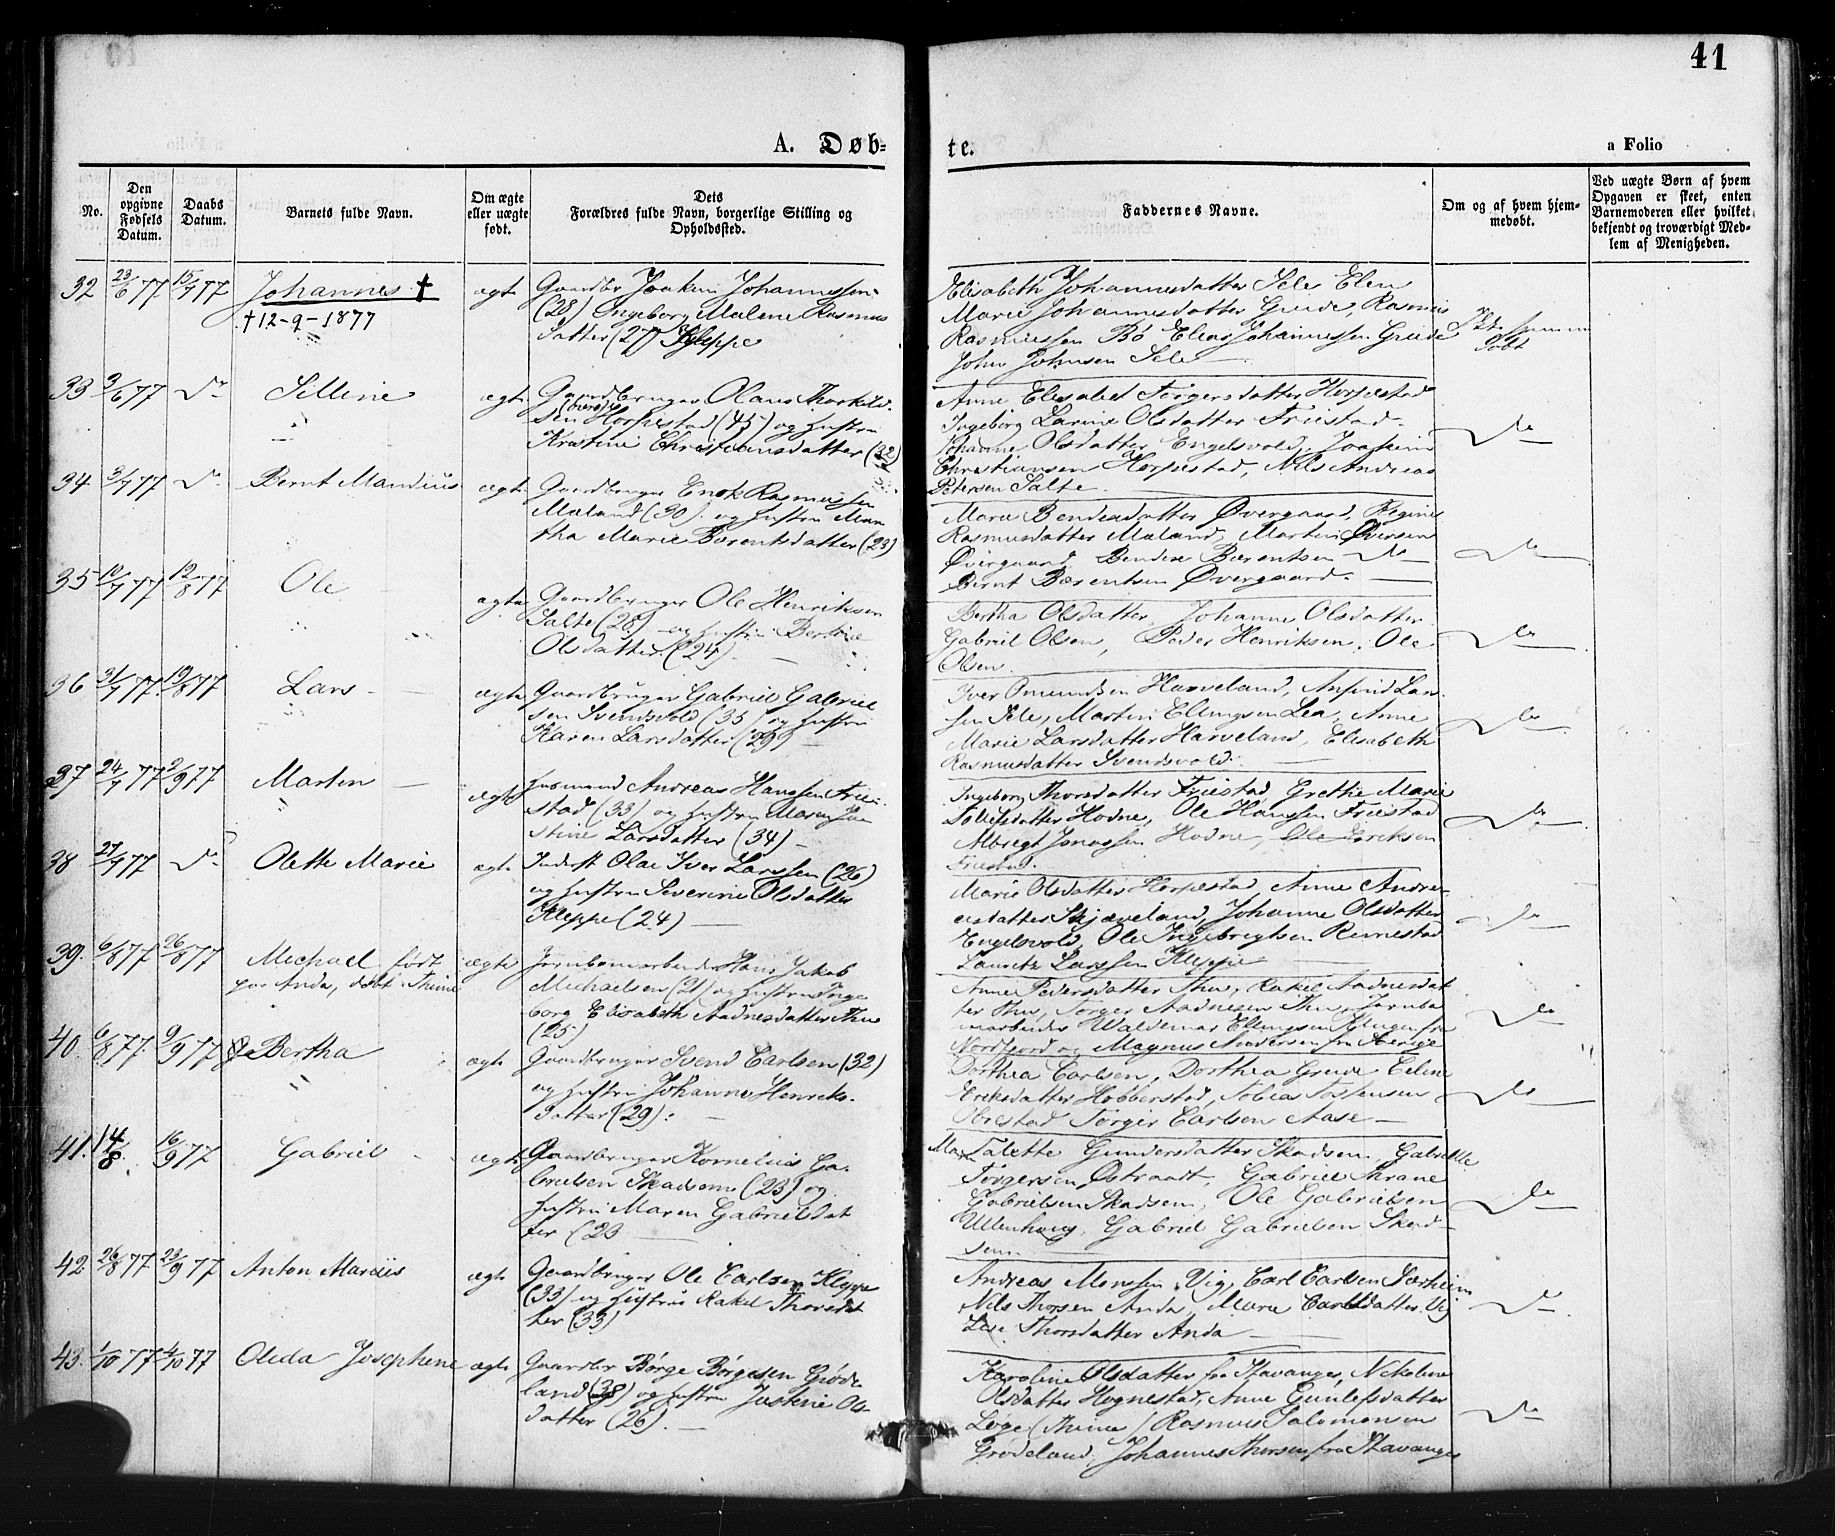 41
A. Døb-
te.
a Folio
No.
Den opgivne Fødsels Datum.
Daabs Datum.
Barnets fulde Navn.
Om ægte eller uægte født.
Dets
Forældres fulde Navn, borgerlige Stilling og
Opholdssted.
Faddernes Navne.
Om og af hvem hjem-
medøbt.
Ved uægte Børn af hvem
Opgaven er skeet, enten
Barnemoderen eller hvilket
bekjendt og troværdigt Med-
lem af Menigheden.
32 23/6 77 15/7 77 Johannes † ægte
† 12-9-1877
Gaardbr Joakim Johannessen
(28) Ingeborg Malene Rasmus
datter (27) Kleppe
Elisabeth Johannesdatter Sele Elen
Marie Johannesdatter Grude, Rasmus
Rasmussen Bö Elias Johannessen Grude
John Johnsen Sele
33 3/6 77 do Silline ægte
Gaardbruger Olaus Thorkild-
sen Horpestad (45) og hustru
Kristine Christiansdatter (32)
Anne Elisabet Törgersdatter Horpestad
Ingeborg Larine Olsdatter Friestad
Johanne Olsdatter Engelsvold, Joakim
Christiansen Horpestad, Nils Andreas
Petersen Salte
do
34 3/7 77 do Bernt Mandius ægte
Gaardbruger Enok Rasmussen
Mæland (30) og hustru Mar
tha Marie Bærentsdatter (23)
Marie Bendixdatter Øvergaard, Regine
Rasmusdatter Mæland, Martin Iversen
Øvergaard, Bendix Bærentsen do
Bernt Bærentsen Øvergaard.
do
35 10/7 77 12/8 77 Ole ægte
Gaardbruger Ole Henriksen
Salte (28) og hustru Bertine
Olsdatter (24)
Bertha Olsdatter Johanne Olsdatter
Gabriel Olsen, Peder Henriksen, Ole
Olsen.
do
36 31/7 77 19/8 77 Lars ægte
Gaardbruger Gabriel Gabriel
sen Svendsvold (35) og hustru
Karen Larsdatter (29)
Iver Omundsen Haaveland, Anfind Lar-
sen Sele, Martin Ellingsen Lea, Anne
Marie Larsdatter Haaveland, Elisabeth
Rasmusdatter Svendsvold.
do
37 24/7 77 2/9 77 Marten ægte
Husmand Andreas Hanssen Frie-
stad (33) og hustru
stine Larsdatter (34)
Ingeborg Thorsdatter Friestad Grethe Marie
Tollefsdatter Hodne, Ole Hanssen Friestad
Albregt Jonassen Hodne, Ole Eriksen
Friestad.
do
38 27/7 77 do Olette Marie ægte
Inderst Olai Iver Larssen (26)
og hustru Severine Olsdatter
Kleppe (24)
Marie Olsdatter Horpestad, Anne Andre-
asdatter Skjæveland, Johanne Olsdatter
Engelsvold, Ole Ingebregtsen Rimestad
Lauritz Larssen Kleppe
do
39. 6/8 77 26/8 77 Michael født ægte
paa Anda, døbt i Thime
Jernbanearbeider Hans Jakob
Michaelsen (21) og hustru Inge
borg Elisabeth Aadnesdatter Thu
(25)
Anne Pedersdatter Thu, Rakel Aadnesdat
ter Thu, Törger Aadnesen Thu, Jernba
nearbeider Waldemar Ellingsen Klungen fra
Nordfjord og Magnus Andersen fra Sverige
do
40. 6/8 77. 9/9 77 Bertha ægte
Gaardbruger Svend Carlsen (32)
og hustru Johanne Henriks-
datter (29).
Dorthea Carlsen, Dorthea Grude Eline
Eriksdatter Hobberstad, Tobias Tostensen
Obrestad Törger Carlsen Aase
do
41. 14/8 16/9 77 Gabriel ægte
Gaardbruger Kornelius Ga-
brielsen Skadsem (23) og
hustru Maren Gabrielsdat
ter (23
Talette Gundersdatter Skadsem, Gabrielle
Törgersen Østraadt, Gabriel Thrane
Gabrielsen Skadsem, Ole Gabrielsen
Ullenhaug, Gabriel Gabrielsen Skad-
sem
do
42. 26/8 77 23/9 77 Anton Marius ægte
Gaardbruger Ole Carlsen Kleppe
(33) og hustru Rakel Thorsdat
ter (33)
Andreas Monssen Vig, Carl Carlsen Særheim
Nils Thorsen Anda, Marie Carlsdatter Vig
Lise Thorsdatter Anda
do
43. 1/10 77 4/10 77 Oleda Josephine ægte
Gaardbr Børge Børgesen Grøde-
land (38) og hustru Justine Ols
datter (26).
Karoline Olsdatter fra Stavanger, Nikoline
Olsdatter Hognestad, Anne Gunlefsdatter
Lege (Thime) Rasmus Salomonsen
Grødeland, Johannes Thorsen fra Stavanger
do